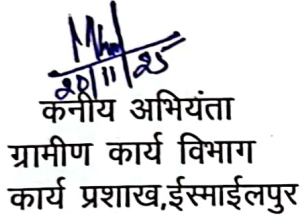 20/11/25
कनीय अभियंता
ग्रामीण कार्य विभाग
कार्य प्रशाख,ईस्माईलपुर